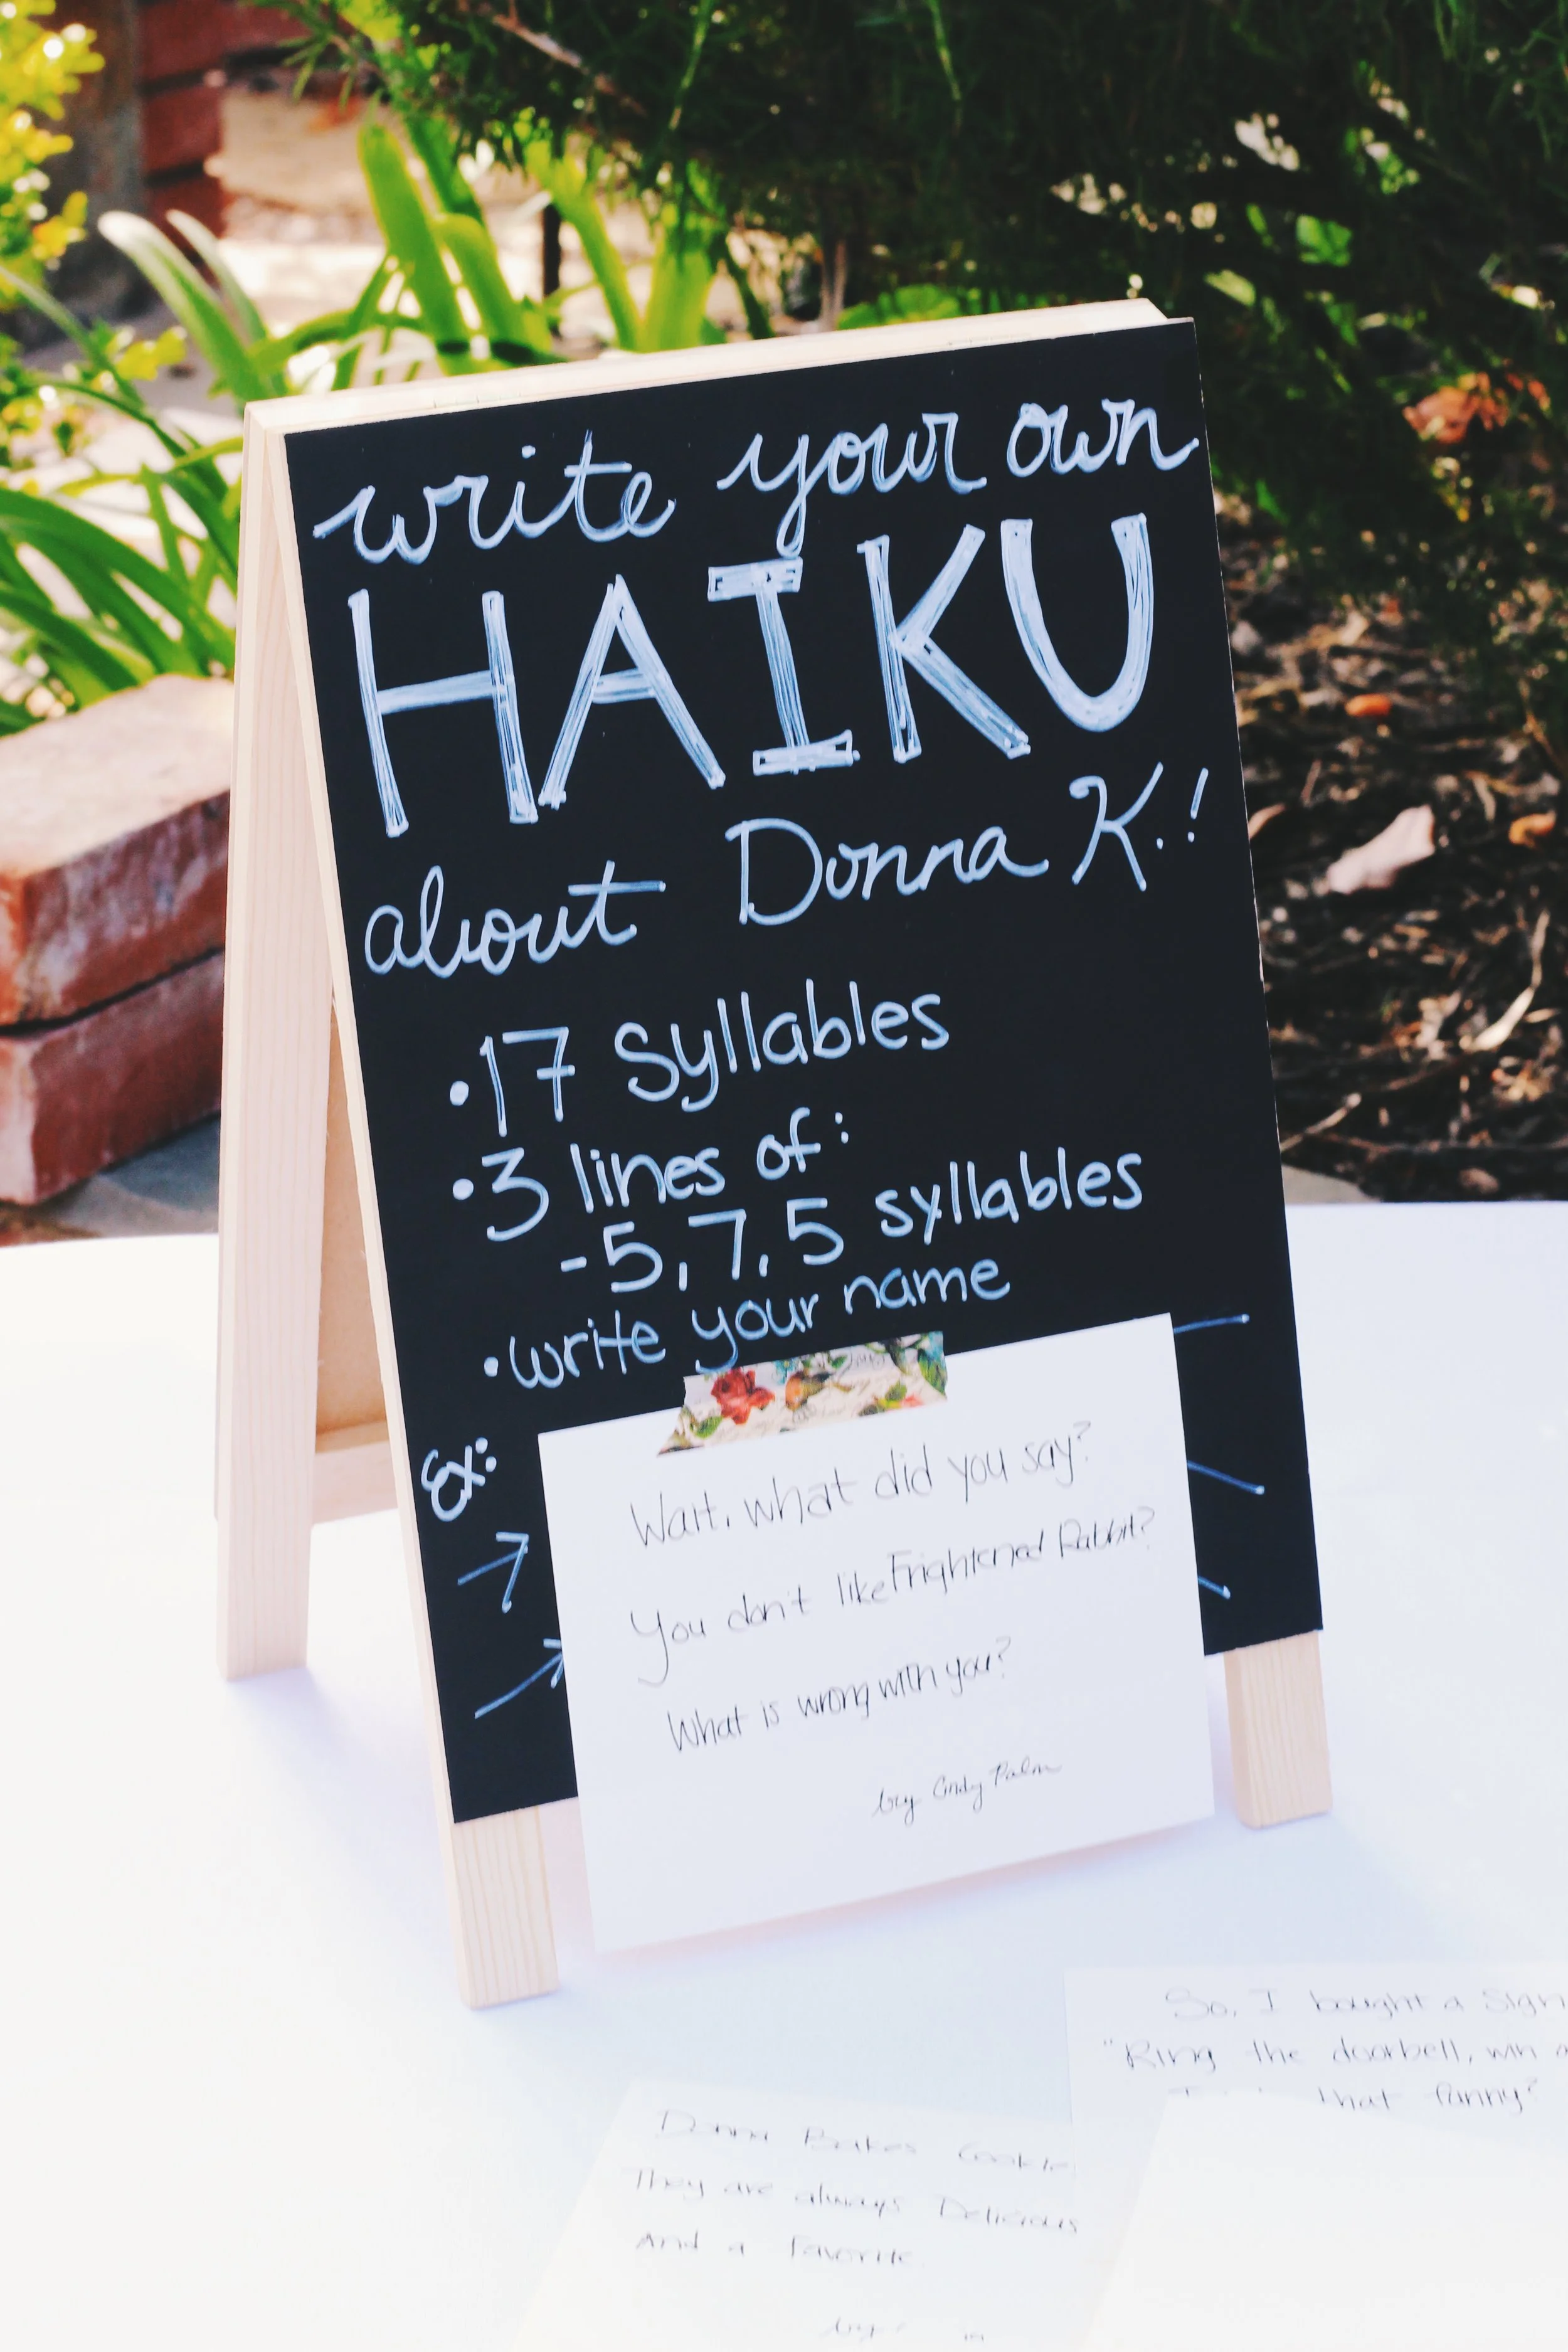 write your own
HAIKU
about Donna K.!
• 17 Syllables
• 3 lines of:
- 5, 7, 5 syllables
• write your name
Ex:
Wait, what did you say?
You don't like Frightened Rabbit?
What is wrong with you?
by Cindy Palm
So, I bought a Sign
"Ring the doorbell, win a
that funny?
Donna Bakes Cookie
They are always Delicious
And a Favorite.
by